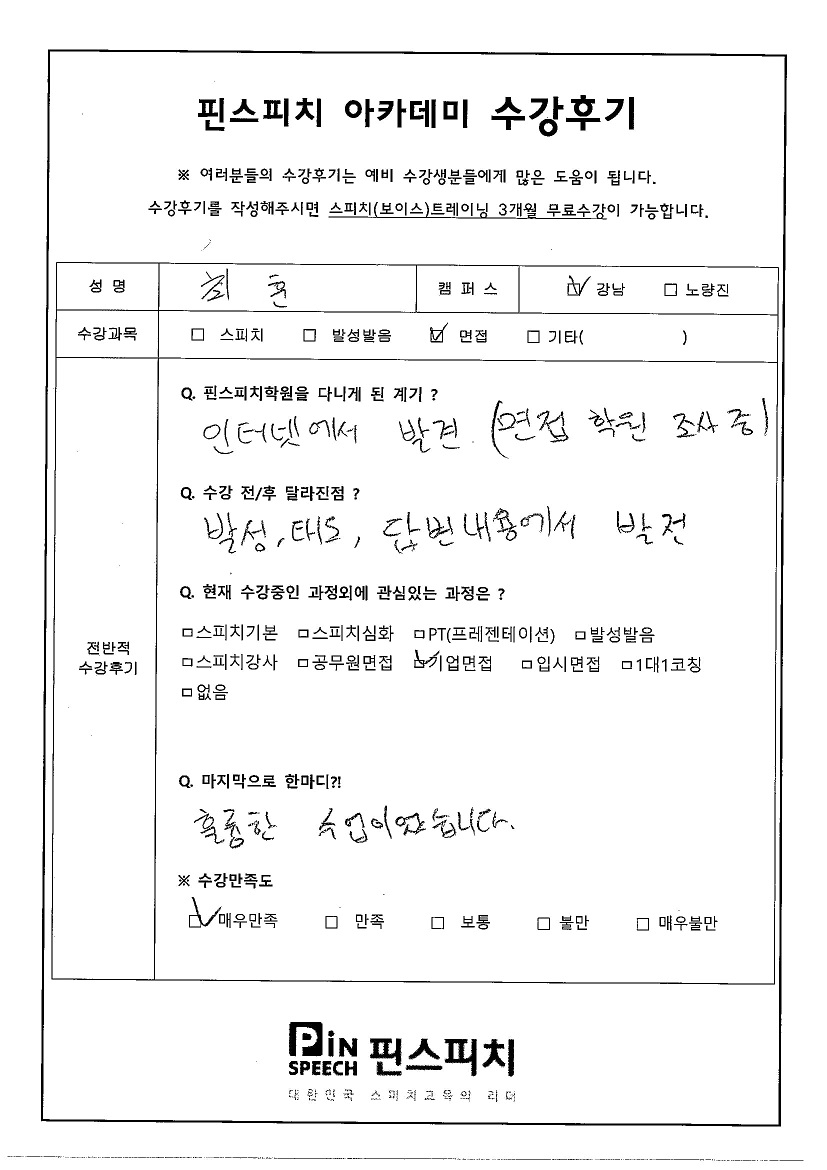 핀스피치 아카데미 수강후기
※ 여러분들의 수강후기는 예비 수강생분들에게 많은 도움이 됩니다.
수강후기를 작성해주시면 스피치(보이스)트레이닝 3개월 무료수강이 가능합니다.
성 명 최 훈 캠 퍼 스 ☑ 강남 □ 노량진
수강과목 □ 스피치 □ 발성발음 ☑ 면접 □ 기타( )
전반적
수강후기
Q. 핀스피치학원을 다니게 된 계기 ?
인터넷에서 발견. (면접 학원 조사 중)
Q. 수강 전/후 달라진점 ?
발성, 태도, 답변내용에서 발전
Q. 현재 수강중인 과정외에 관심있는 과정은 ?
□스피치기본 □스피치심화 □PT(프레젠테이션) □발성발음
□스피치강사 □공무원면접 ☑기업면접 □입시면접 □1대1코칭
□없음
Q. 마지막으로 한마디?!
훌륭한 수업이었습니다.
※ 수강만족도
☑매우만족 □ 만족 □ 보통 □ 불만 □ 매우불만
PiN
SPEECH 핀스피치
대한민국 스피치교육의 리더